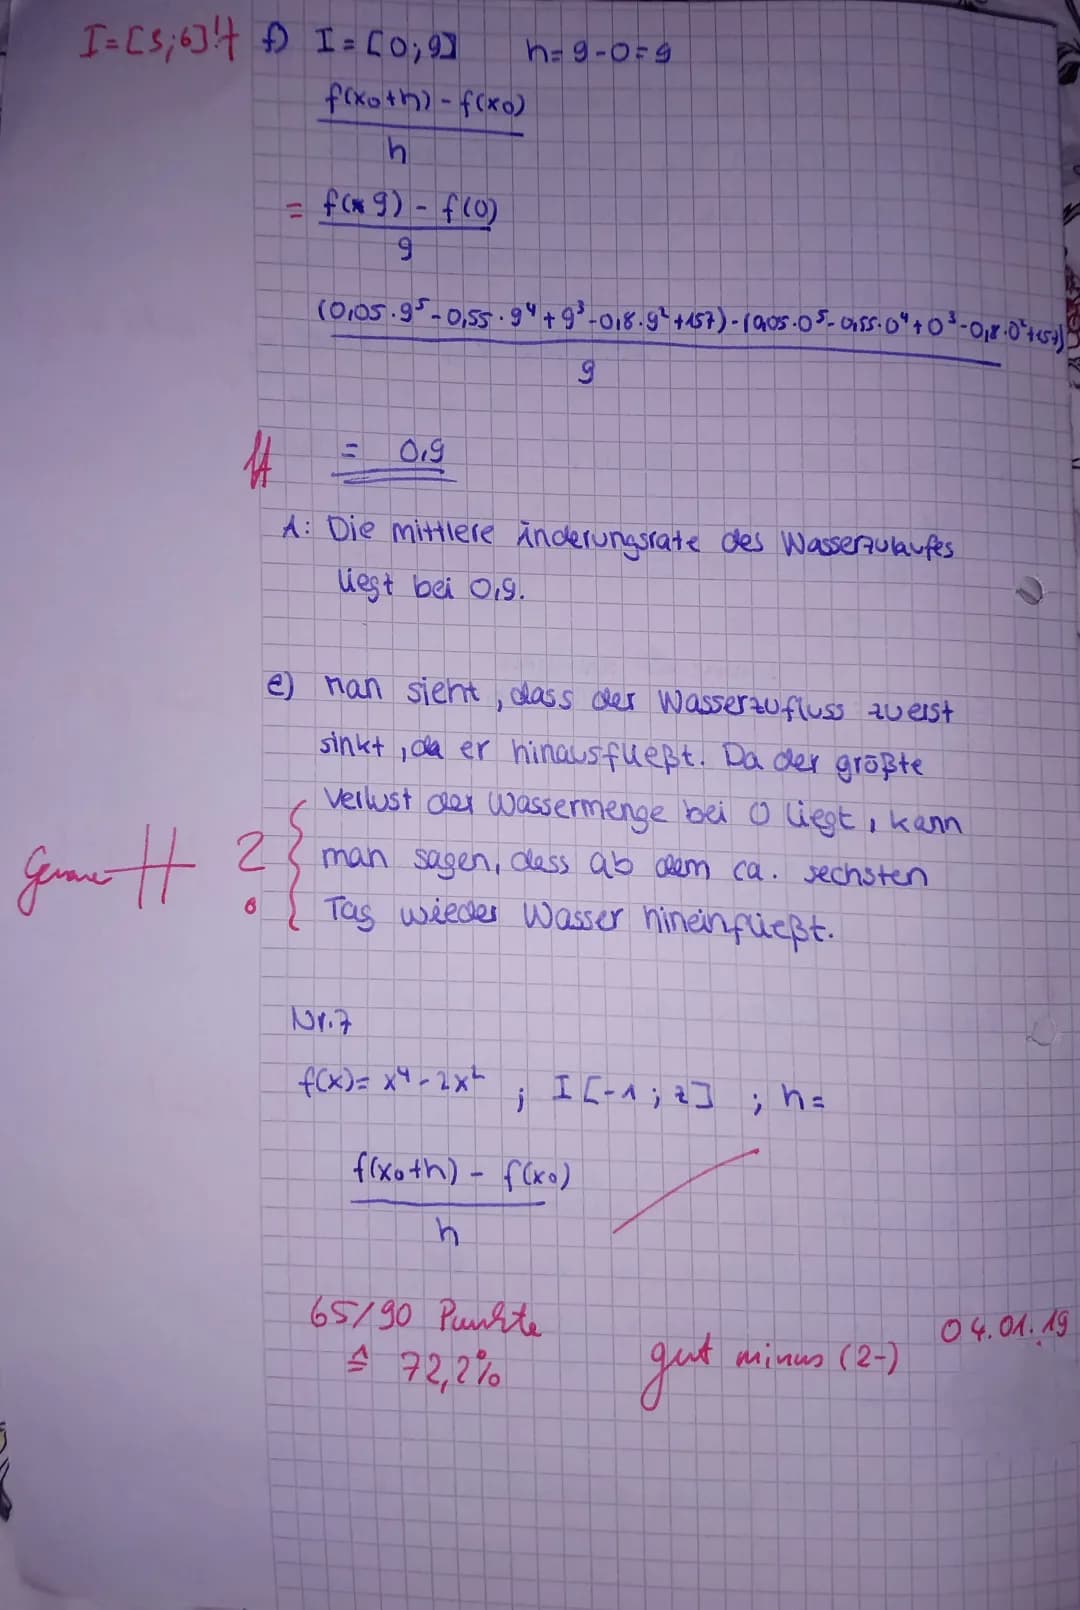 I=[5;6]!
f) I=[0;9] h=9-0=9
f(x₀+h)-f(x₀)
h
= f(9)-f(0)
9
(0,05·9⁵-0,55·9⁴+9³-0,8·9²+157)-(0,05·0⁵-0,55·0⁴+0³-0,8·0²+157)
9
= 0,9
A: Die mittlere Änderungsrate des Wasserzulaufes
liegt bei 0,9.
e) Man sieht, dass der Wasserzufluss zuerst
sinkt, da er hinausfließt. Da der größte
Verlust der Wassermenge bei 0 liegt, kann
man sagen, dass ab dem ca. sechsten
Tag wieder Wasser hineinfließt.
Nr.7
f(x)= x⁴-2x² ; I[-1;2] ; h=
f(x₀+h)-f(x₀)
h
65/90 Punkte
≙ 72,2%
gut minus (2-)
04.01.19